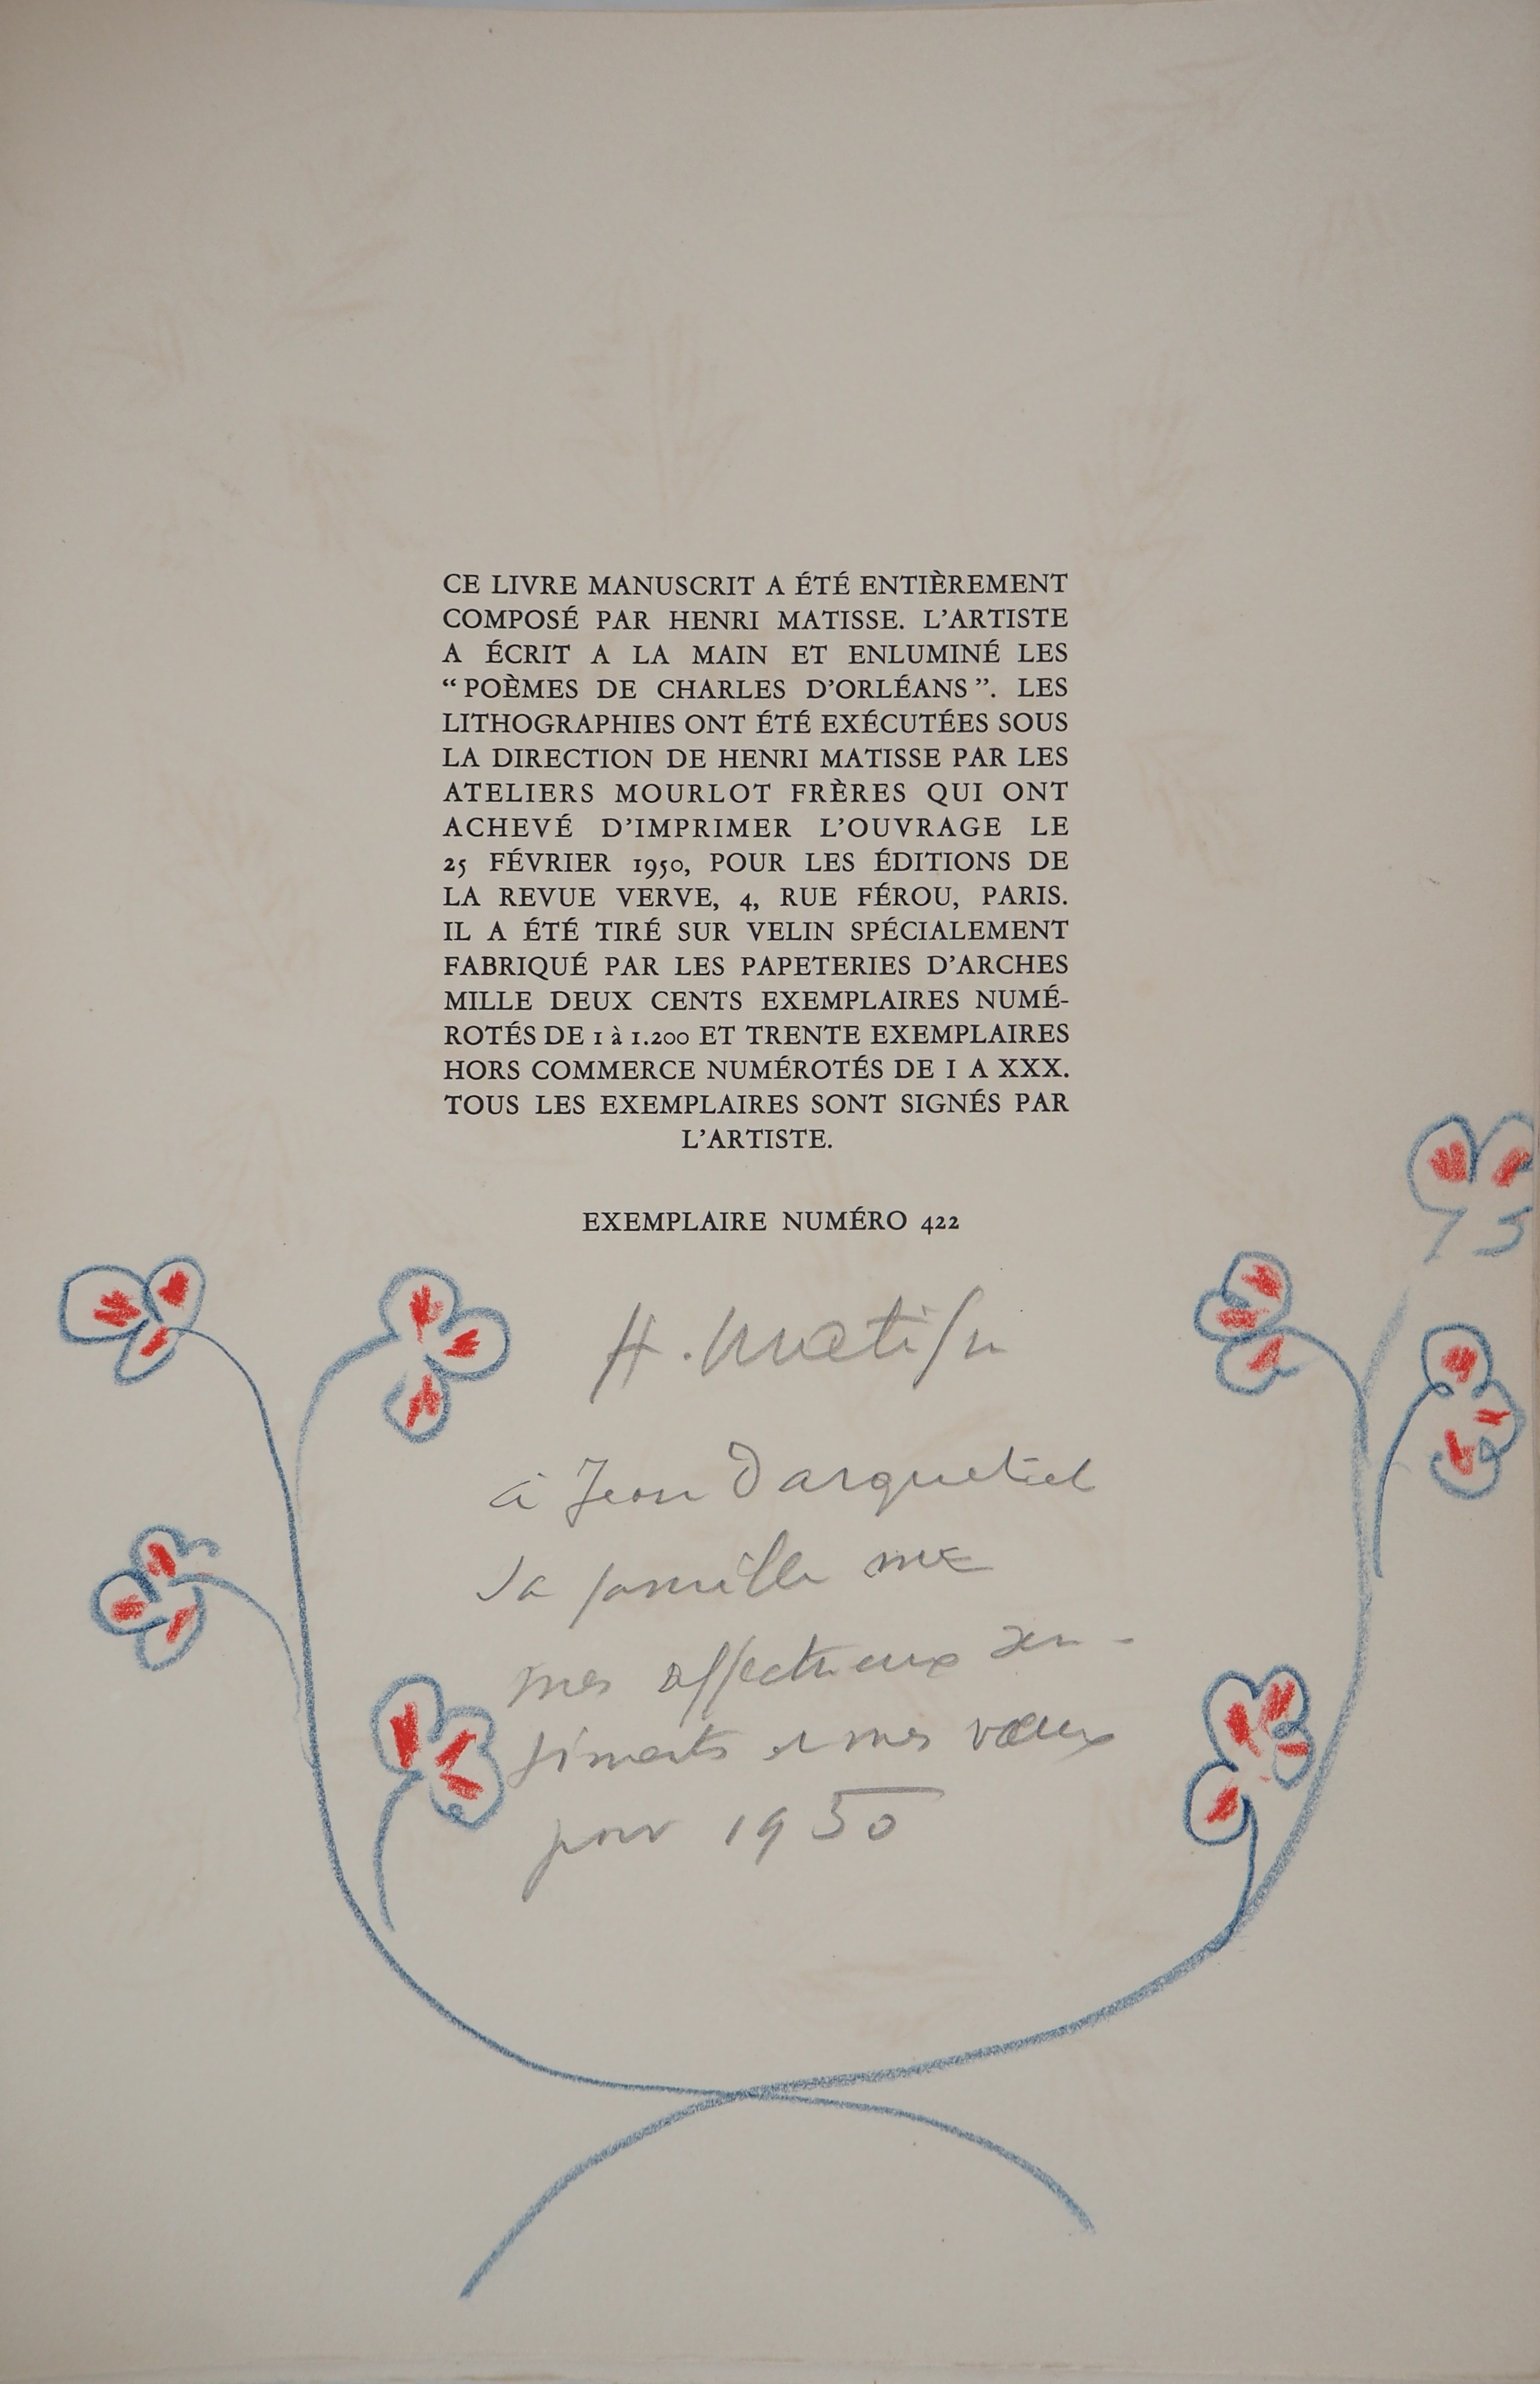 CE LIVRE MANUSCRIT A ÉTÉ ENTIÈREMENT
COMPOSÉ PAR HENRI MATISSE. L'ARTISTE
A ÉCRIT A LA MAIN ET ENLUMINÉ LES
“POÈMES DE CHARLES D'ORLÉANS”. LES
LITHOGRAPHIES ONT ÉTÉ EXÉCUTÉES SOUS
LA DIRECTION DE HENRI MATISSE PAR LES
ATELIERS MOURLOT FRÈRES QUI ONT
ACHEVÉ D'IMPRIMER L'OUVRAGE LE
25 FÉVRIER 1950, POUR LES ÉDITIONS DE
LA REVUE VERVE, 4, RUE FÉROU, PARIS.
IL A ÉTÉ TIRÉ SUR VELIN SPÉCIALEMENT
FABRIQUÉ PAR LES PAPETERIES D'ARCHES
MILLE DEUX CENTS EXEMPLAIRES NUMÉ-
ROTÉS DE 1 à 1.200 ET TRENTE EXEMPLAIRES
HORS COMMERCE NUMÉROTÉS DE I A XXX.
TOUS LES EXEMPLAIRES SONT SIGNÉS PAR
L'ARTISTE.
EXEMPLAIRE NUMÉRO 422
H. Matisse
à Jean
sa famille
mes affectueux sen-
timents et mes vœux
pour 1950